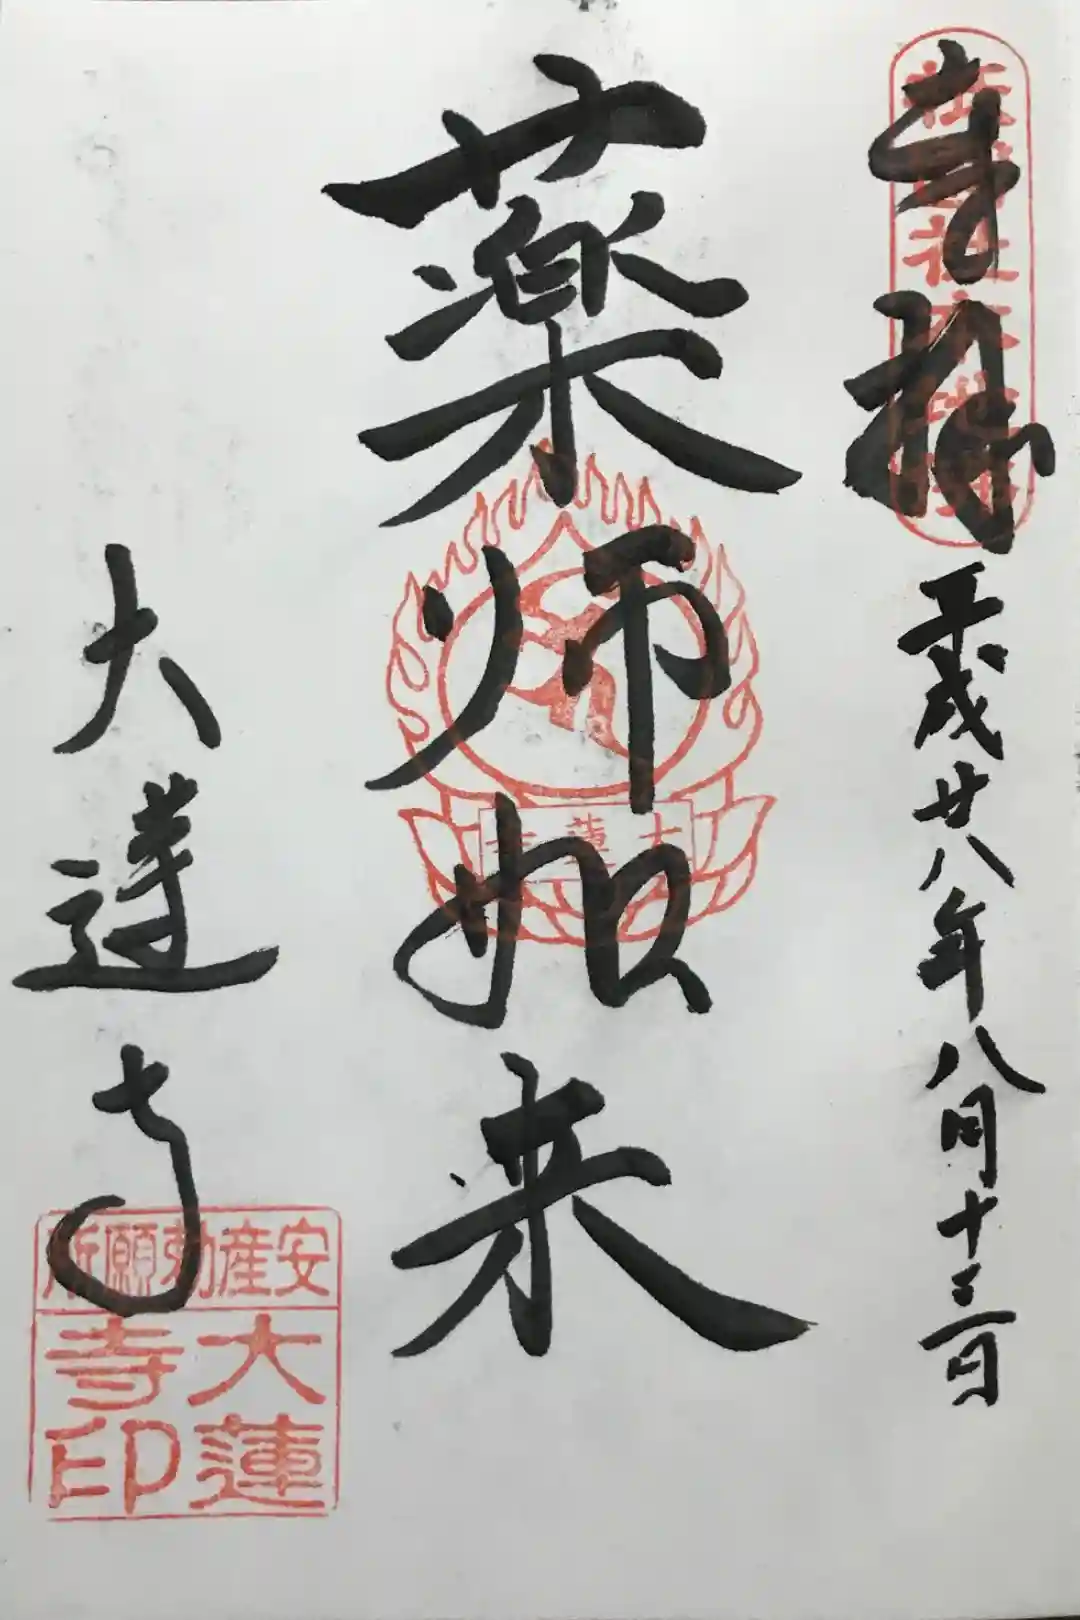 奉拝
平成廿八年八月十三日
薬師如来
大蓮寺
大蓮寺
安産勅願所
大蓮
寺印